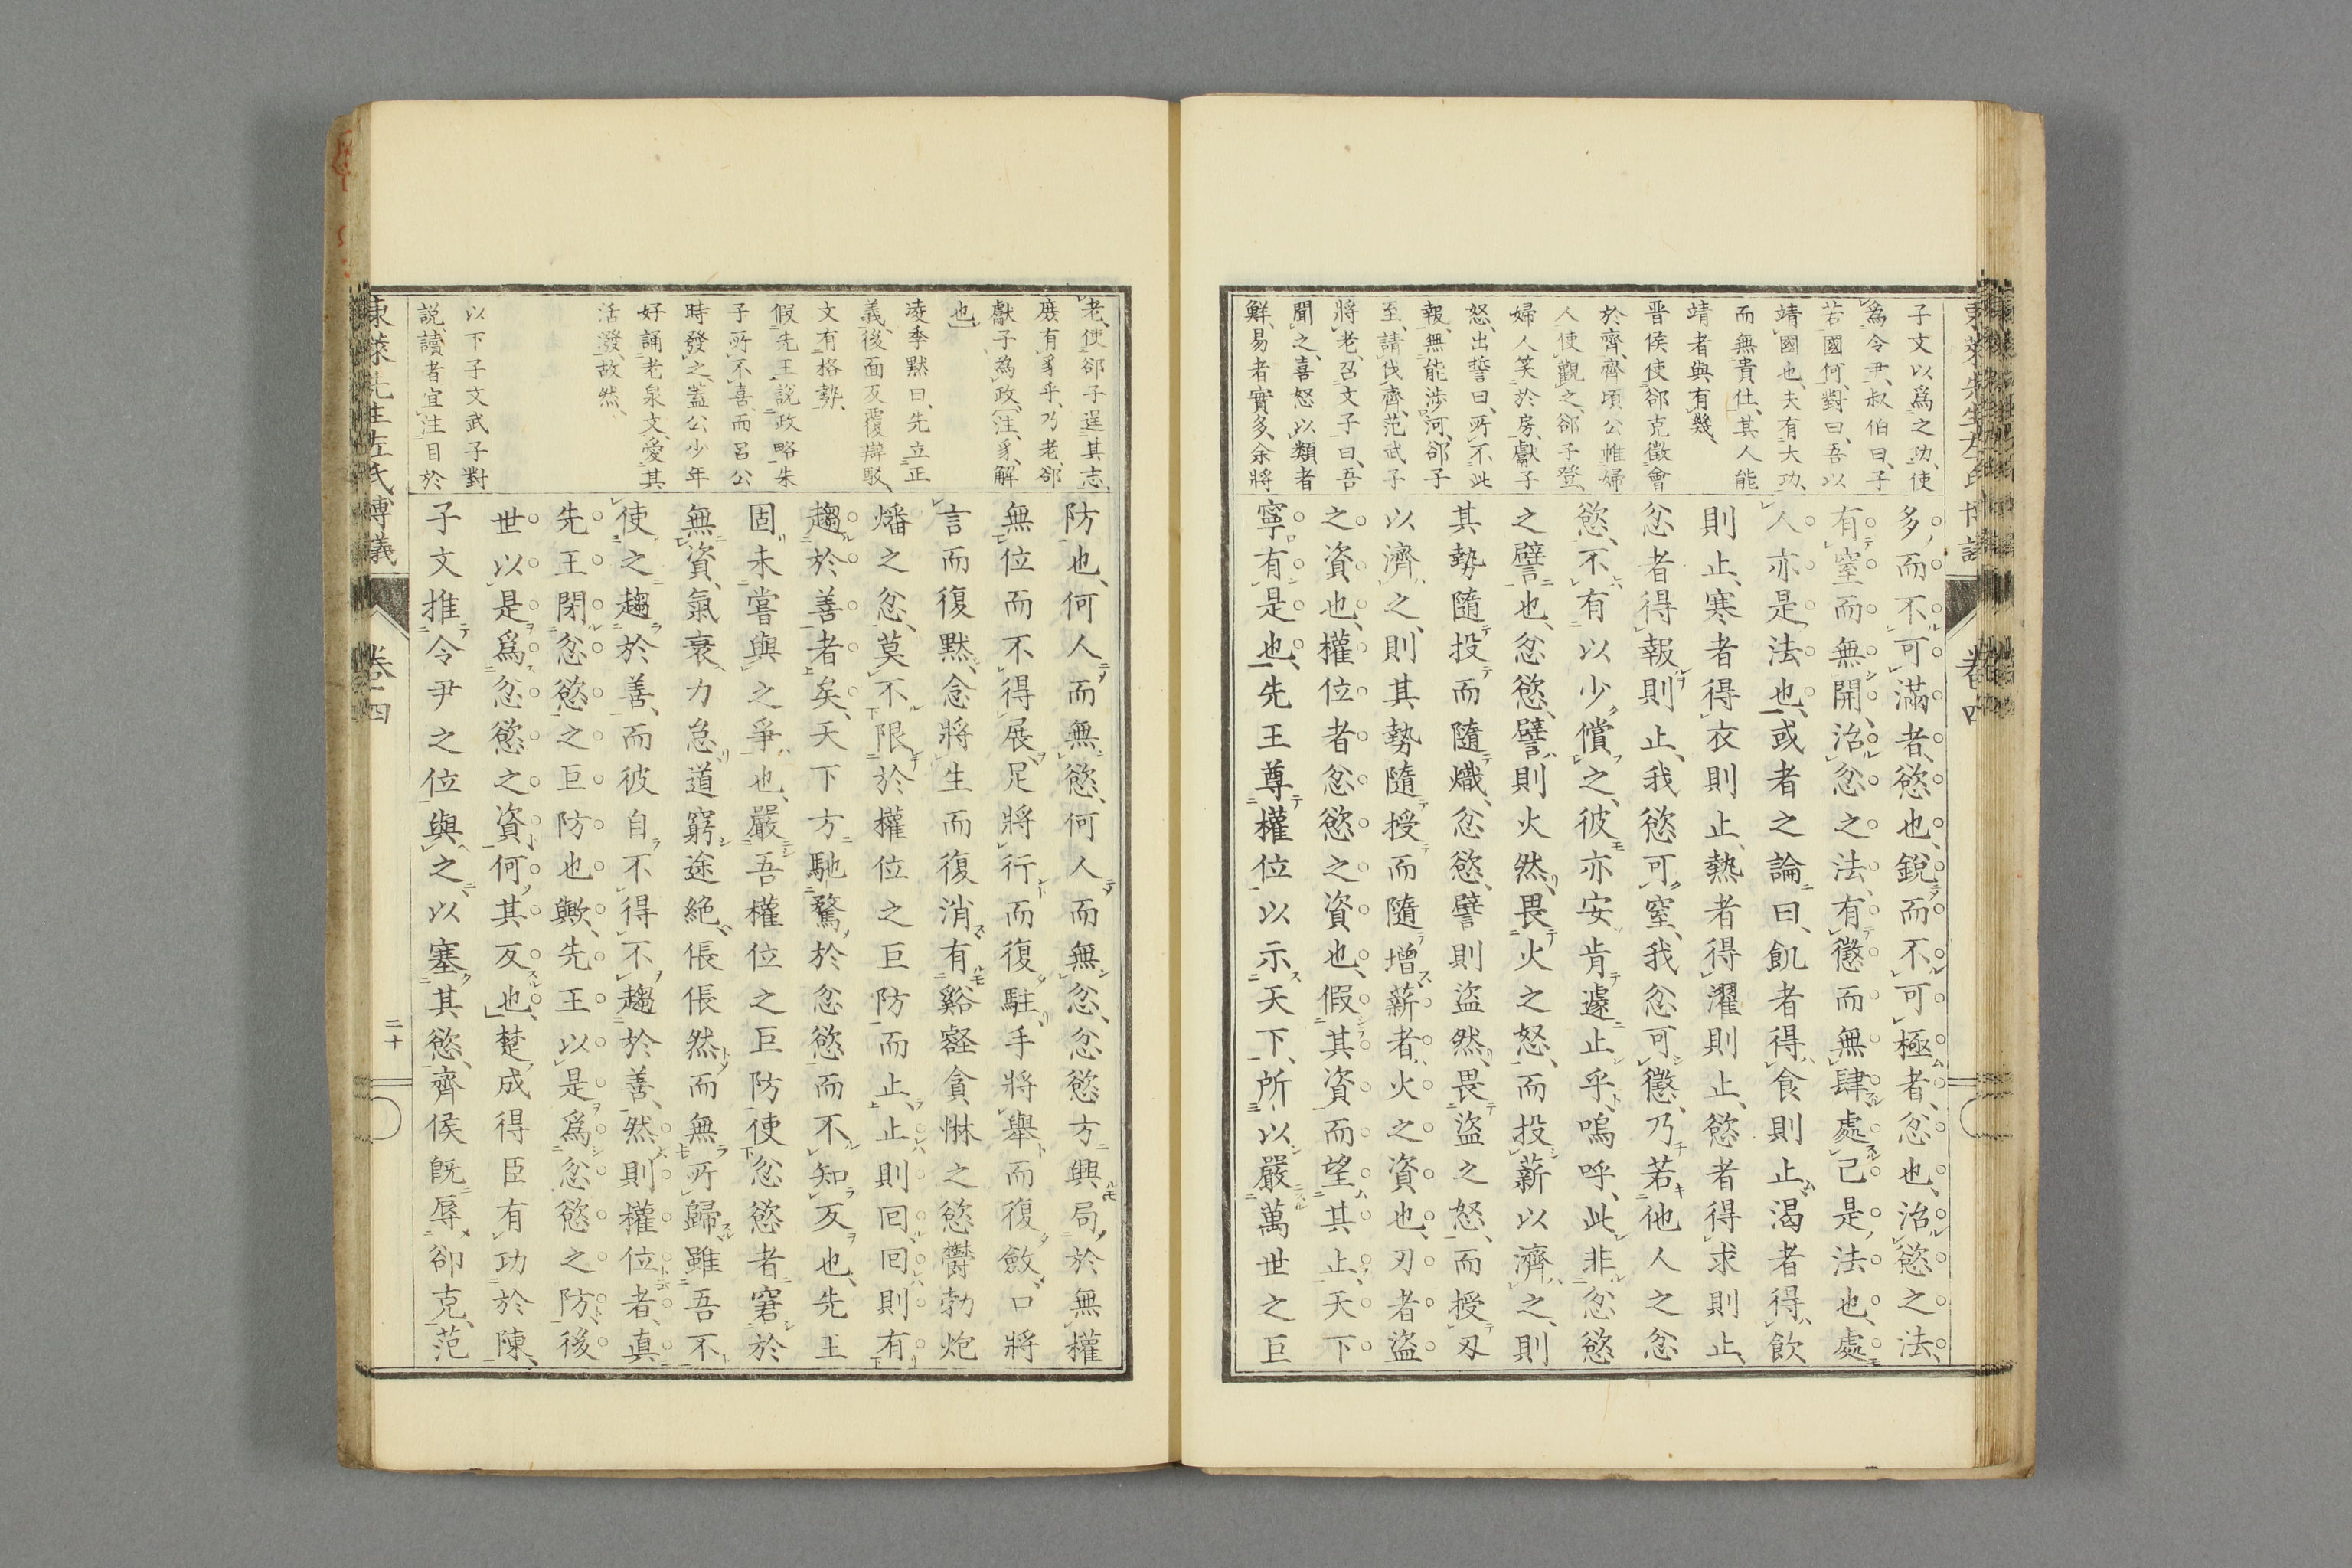 子文以爲之功、使
為令尹、叔伯曰、子
若國何、對曰、吾以
靖國也、夫有大功、
而無貴仕、其人能
靖者與有幾、
晋侯使郤克徵會
於齊、齊頃公帷婦
人使觀之、郤子登、
婦人笑於房、獻子
怒、出誓曰、所不此
報、無能渉河、郤子
至、請伐齊、范武子
將老、召文子曰、吾
聞之、喜怒以類者
鮮、易者實多、余將
多、而不可滿者、慾也、銳而不可極者、忿也、治慾之法、
有窒而無開、治忿之法、有懲而無肆、處己是法也、處
人亦是法也、或者之論曰、飢者得食則止、渴者得飲
則止、寒者得衣則止、熱者得濯則止、慾者得求則止、
忿者得報則止、我慾可窒、我忿可懲、乃若他人之忿
慾、不有以少償之、彼亦安肯遽止乎、嗚呼、此非忿慾
之譬也、忿慾、譬則火然、畏火之怒、而投薪以濟之、則
其勢隨投而隨熾、忿慾、譬則盜然、畏盜之怒、而授刄
以濟之、則其勢隨授而隨增、薪者、火之資也、刃者盜
之資也、權位者忿慾之資也、假其資而望其止、天下
寧有是也、先王尊權位以示天下、所以嚴萬世之巨
東萊先生左氏博議
卷四
老、使郤子逞其志、
庶有豸乎、乃老、郤
獻子為政、注、豸、解
也
凌季默曰、先立正
義、後面反覆辯駁、
文有格勢、
假先王説政略朱
子所不喜、而呂公
時發之、蓋公少年
好誦老泉文、愛其
活潑、故然、
以下子文武子對
説、讀者宜注目於
防也、何人而無慾、何人而無忿、忿慾方興、局於無權
無位而不得展、足將行而復駐、手將舉而復斂、口將
言而復默、念將生而復消、有谿壑貪惏之慾、鬱勃炮
燔之忿、莫不限於權位之巨防而止、止則囘囘則有
趨於善者矣、天下方馳騖於忿慾而不知反也、先王
固未嘗與之爭也、嚴吾權位之巨防、使忿慾者窘於
無資、氣衰力怠道窮途絶、倀倀然而無所歸、雖吾不
使之趨於善、而彼自不得不趨於善、然則權位者、真
先王閉忿慾之巨防也歟、先王以是爲忿慾之防、後
世以是爲忿慾之資、何其反也、楚成得臣有功於陳、
子文推令尹之位與之、以塞其慾、齊侯旣辱郤克、范
東萊先生左氏博議
卷四
二十